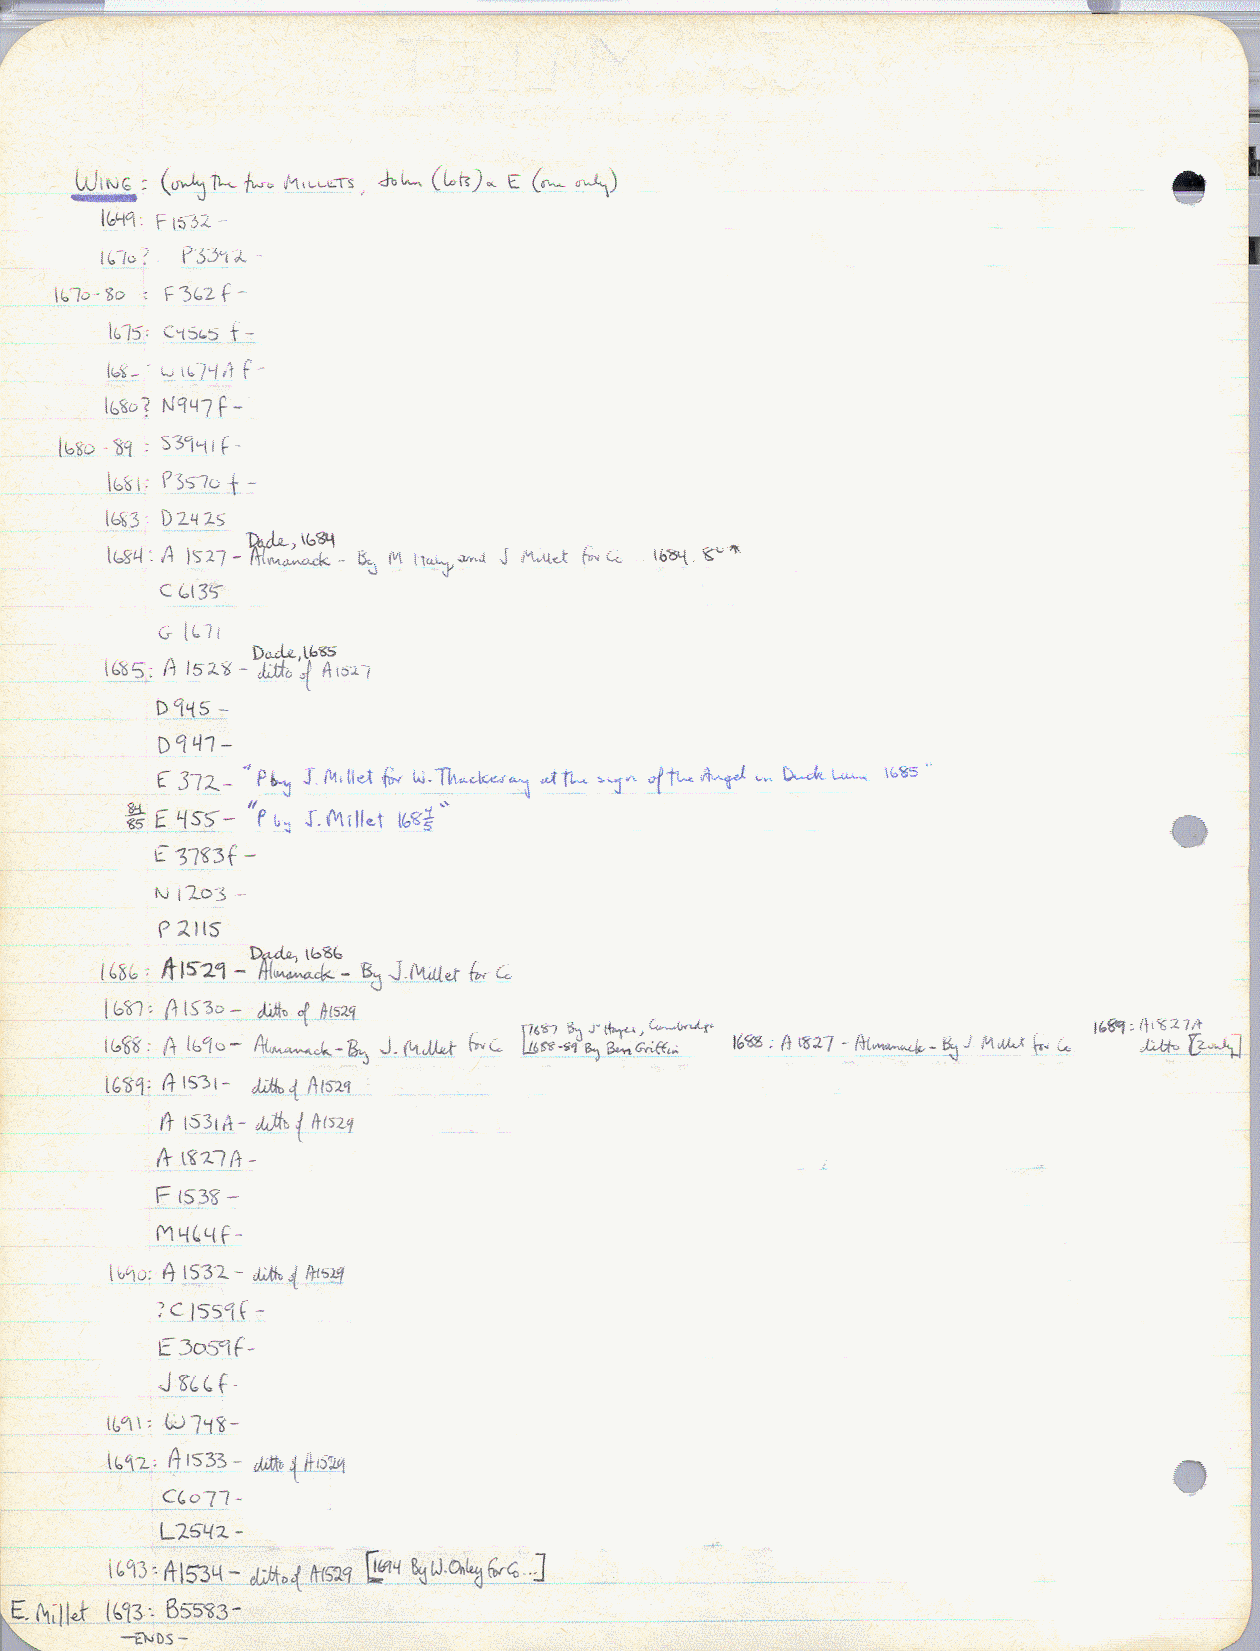 WING: (only the two MILLETS, John (lots) & E (one only)
1649: F1532 -
1670? P3392 -
1670-80 : F362f -
1675: C4565 f -
168_ W1674A f -
1680? N947f -
1680-89 : S3941f -
1681: P3570 f -
1683: D2425
Dade, 1684
1684: A 1527 - Almanack - By M and J Millet for Co 1684. 8°
C6135
G 1671
Dade, 1685
1685: A 1528 - ditto of A1527
D945 -
D947 -
E 372 - "P by J. Millet for W. Thackeray at the sign of the Angel in Duck Lane 1685"
84/85 E 455 - "P by J. Millet 168 4/5"
E 3783f -
N1203 -
P 2115
Dade, 1686
1686: A1529 - Almanack - By J. Millet for Co
1687: A1530 - ditto of A1529
[1687 By J Hayes, Cambridge 1689: A1827A
1688: A 1690 - Almanack - By J. Millet for Co [1688-89 By Benj Griffin 1688: A 1827 - Almanack - By J Millet for Co ditto [2 only]
1689: A1531 - ditto of A1529
A 1531A - ditto of A1529
A 1827A -
F 1538 -
M464f -
1690: A 1532 - ditto of A1529
? C 1559f -
E 3059f -
J 866f -
1691: W 748 -
1692: A1533 - ditto of A1529
C6077 -
L2542 -
1693: A1534 - ditto of A1529 [1694 By W. Onley for Co ...]
E. Millet 1693: B5583 -
- ENDS -